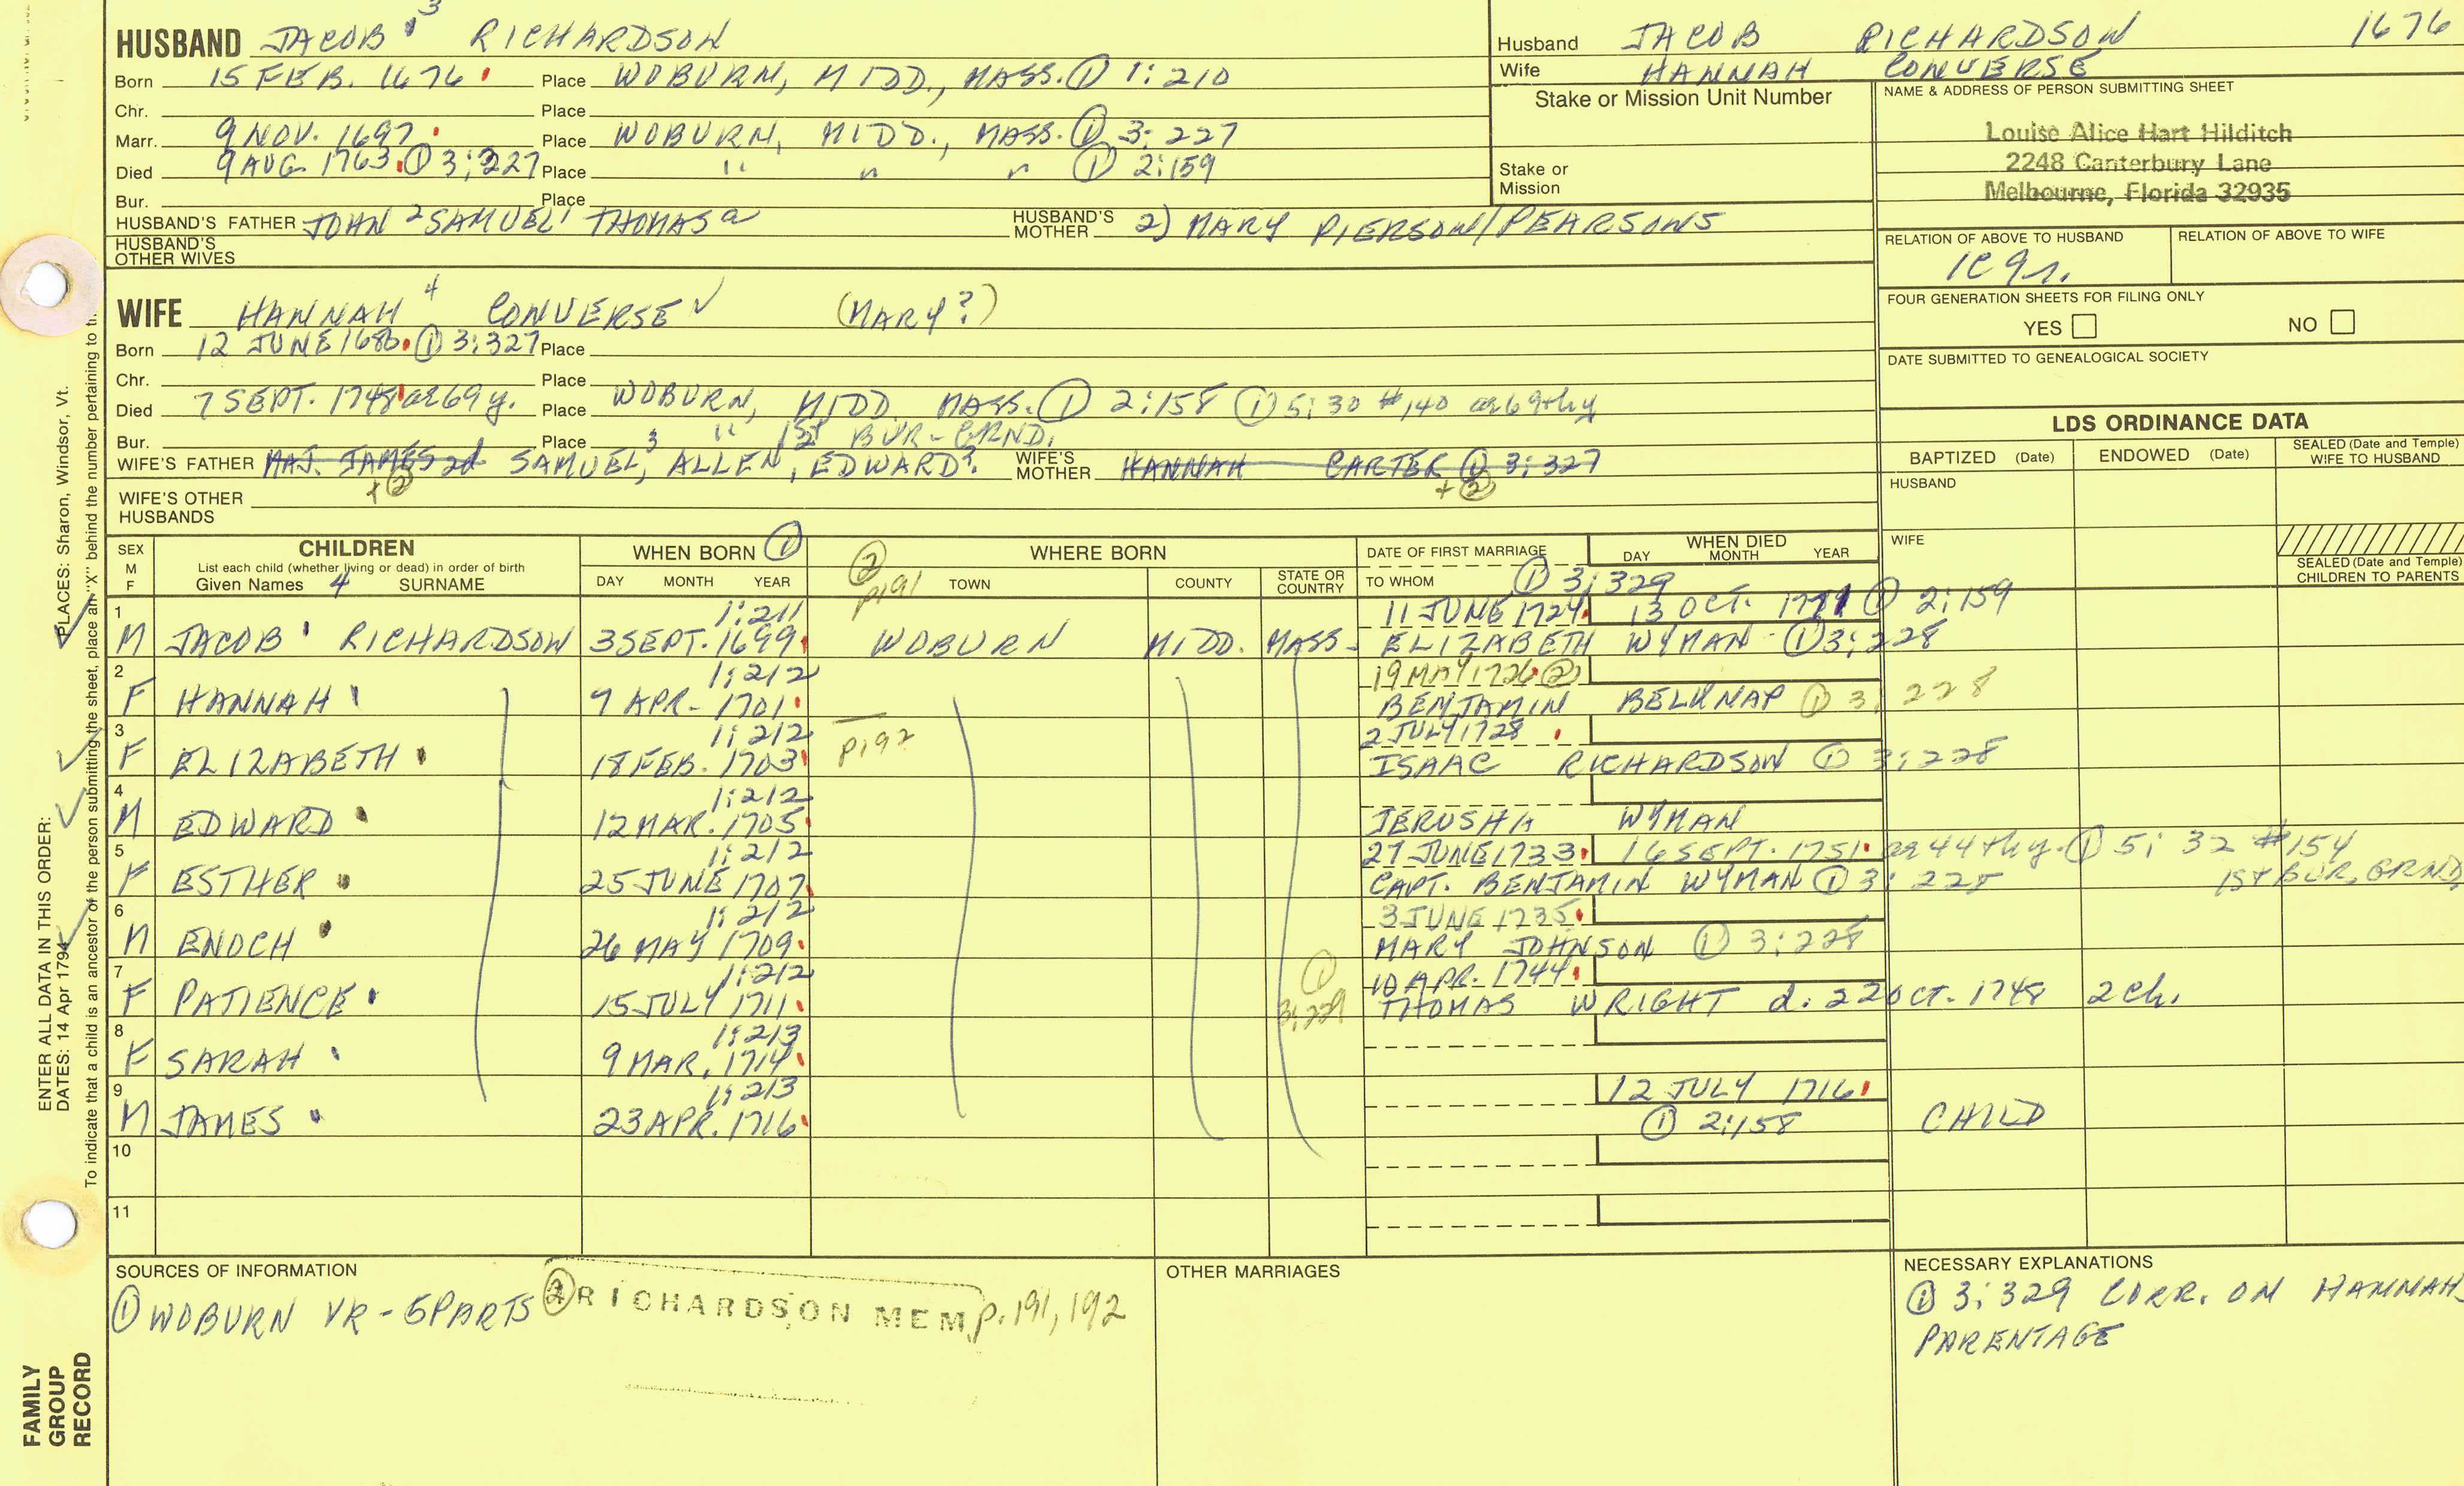 HUSBAND JACOB 3 RICHARDSON
Born 15 FEB. 1676 Place WOBURN, MIDD., MASS. ① 1:210
Chr. Place
Marr. 9 NOV. 1697 Place WOBURN, MIDD., MASS. ① 3:227
Died 9 AUG. 1763 ① 3:227 Place " " " ① 2:159
Bur. Place
HUSBAND'S FATHER JOHN 2 SAMUEL 1 THOMAS a HUSBAND'S MOTHER 2) MARY PIERSON/PEARSONS
HUSBAND'S OTHER WIVES
WIFE HANNAH 4 CONVERSE ✓ (MARY?)
Born 12 JUNE 1680 ① 3:327 Place
Chr. Place
Died 7 SEPT. 1748 ae 69 y. Place WOBURN, MIDD. MASS. ① 2:158 ① 5:30 #140 ae 69thy
Bur. Place " 1st BUR-GRND.
WIFE'S FATHER MAJ. JAMES 2d SAMUEL 3, ALLEN 2, EDWARD? WIFE'S MOTHER HANNAH CARTER ① 3:327
+ ② + ②
WIFE'S OTHER HUSBANDS
Husband JACOB RICHARDSON 1676
Wife HANNAH CONVERSE
Stake or Mission Unit Number
Stake or Mission
NAME & ADDRESS OF PERSON SUBMITTING SHEET
Louise Alice Hart Hilditch
2248 Canterbury Lane
Melbourne, Florida 32935
RELATION OF ABOVE TO HUSBAND RELATION OF ABOVE TO WIFE
FOUR GENERATION SHEETS FOR FILING ONLY
YES NO
DATE SUBMITTED TO GENEALOGICAL SOCIETY
LDS ORDINANCE DATA
BAPTIZED (Date) ENDOWED (Date) SEALED (Date and Temple) WIFE TO HUSBAND
HUSBAND
WIFE
SEALED (Date and Temple) CHILDREN TO PARENTS
SEX M F CHILDREN WHEN BORN ① WHERE BORN DATE OF FIRST MARRIAGE WHEN DIED
List each child (whether living or dead) in order of birth DAY MONTH YEAR
Given Names 4 SURNAME DAY MONTH YEAR ② p191 TOWN COUNTY STATE OR COUNTRY TO WHOM ① 3:329
1 1:211 11 JUNE 1724 13 OCT. ① 2:159
M JACOB RICHARDSON 3 SEPT. 1699 WOBURN MIDD. MASS. ELIZABETH WYMAN ① 3:228
2 1:212 19 MAY 1726 ②
F HANNAH 9 APR. 1701 BENJAMIN BELKNAP ① 3:228
3 1:212 2 JULY 1728
F ELIZABETH 18 FEB. 1703 p192 ISAAC RICHARDSON ① 3:228
4 1:212
M EDWARD 12 MAR. 1705 JERUSHA WYMAN
5 1:212 27 JUNE 1733 16 SEPT. 1751 ae 44thy. ① 5:32 #154
F ESTHER 25 JUNE 1707 CAPT. BENJAMIN WYMAN ① 3:228 1ST BUR. GRND
6 1:212 3 JUNE 1735
M ENOCH 26 MAY 1709 MARY JOHNSON ① 3:228
7 1:212 10 APR. 1744
F PATIENCE 15 JULY 1711 ① 3:229 THOMAS WRIGHT d. 22 OCT. 1748 2 ch.
8 1:213
F SARAH 9 MAR. 1714
9 1:213 12 JULY 1716
M JAMES 23 APR. 1716 ① 2:158 CHILD
10
11
SOURCES OF INFORMATION
① WOBURN VR - 5PARTS ② RICHARDSON MEM p. 191, 192
OTHER MARRIAGES
NECESSARY EXPLANATIONS
① 3:329 CORR. ON HANNAHS
PARENTAGE
ENTER ALL DATA IN THIS ORDER:
PLACES: Sharon, Windsor, Vt.
DATES: 14 Apr 1794
To indicate that a child is an ancestor of the person submitting the sheet, place an "X" behind the number pertaining to th
FAMILY
GROUP
RECORD